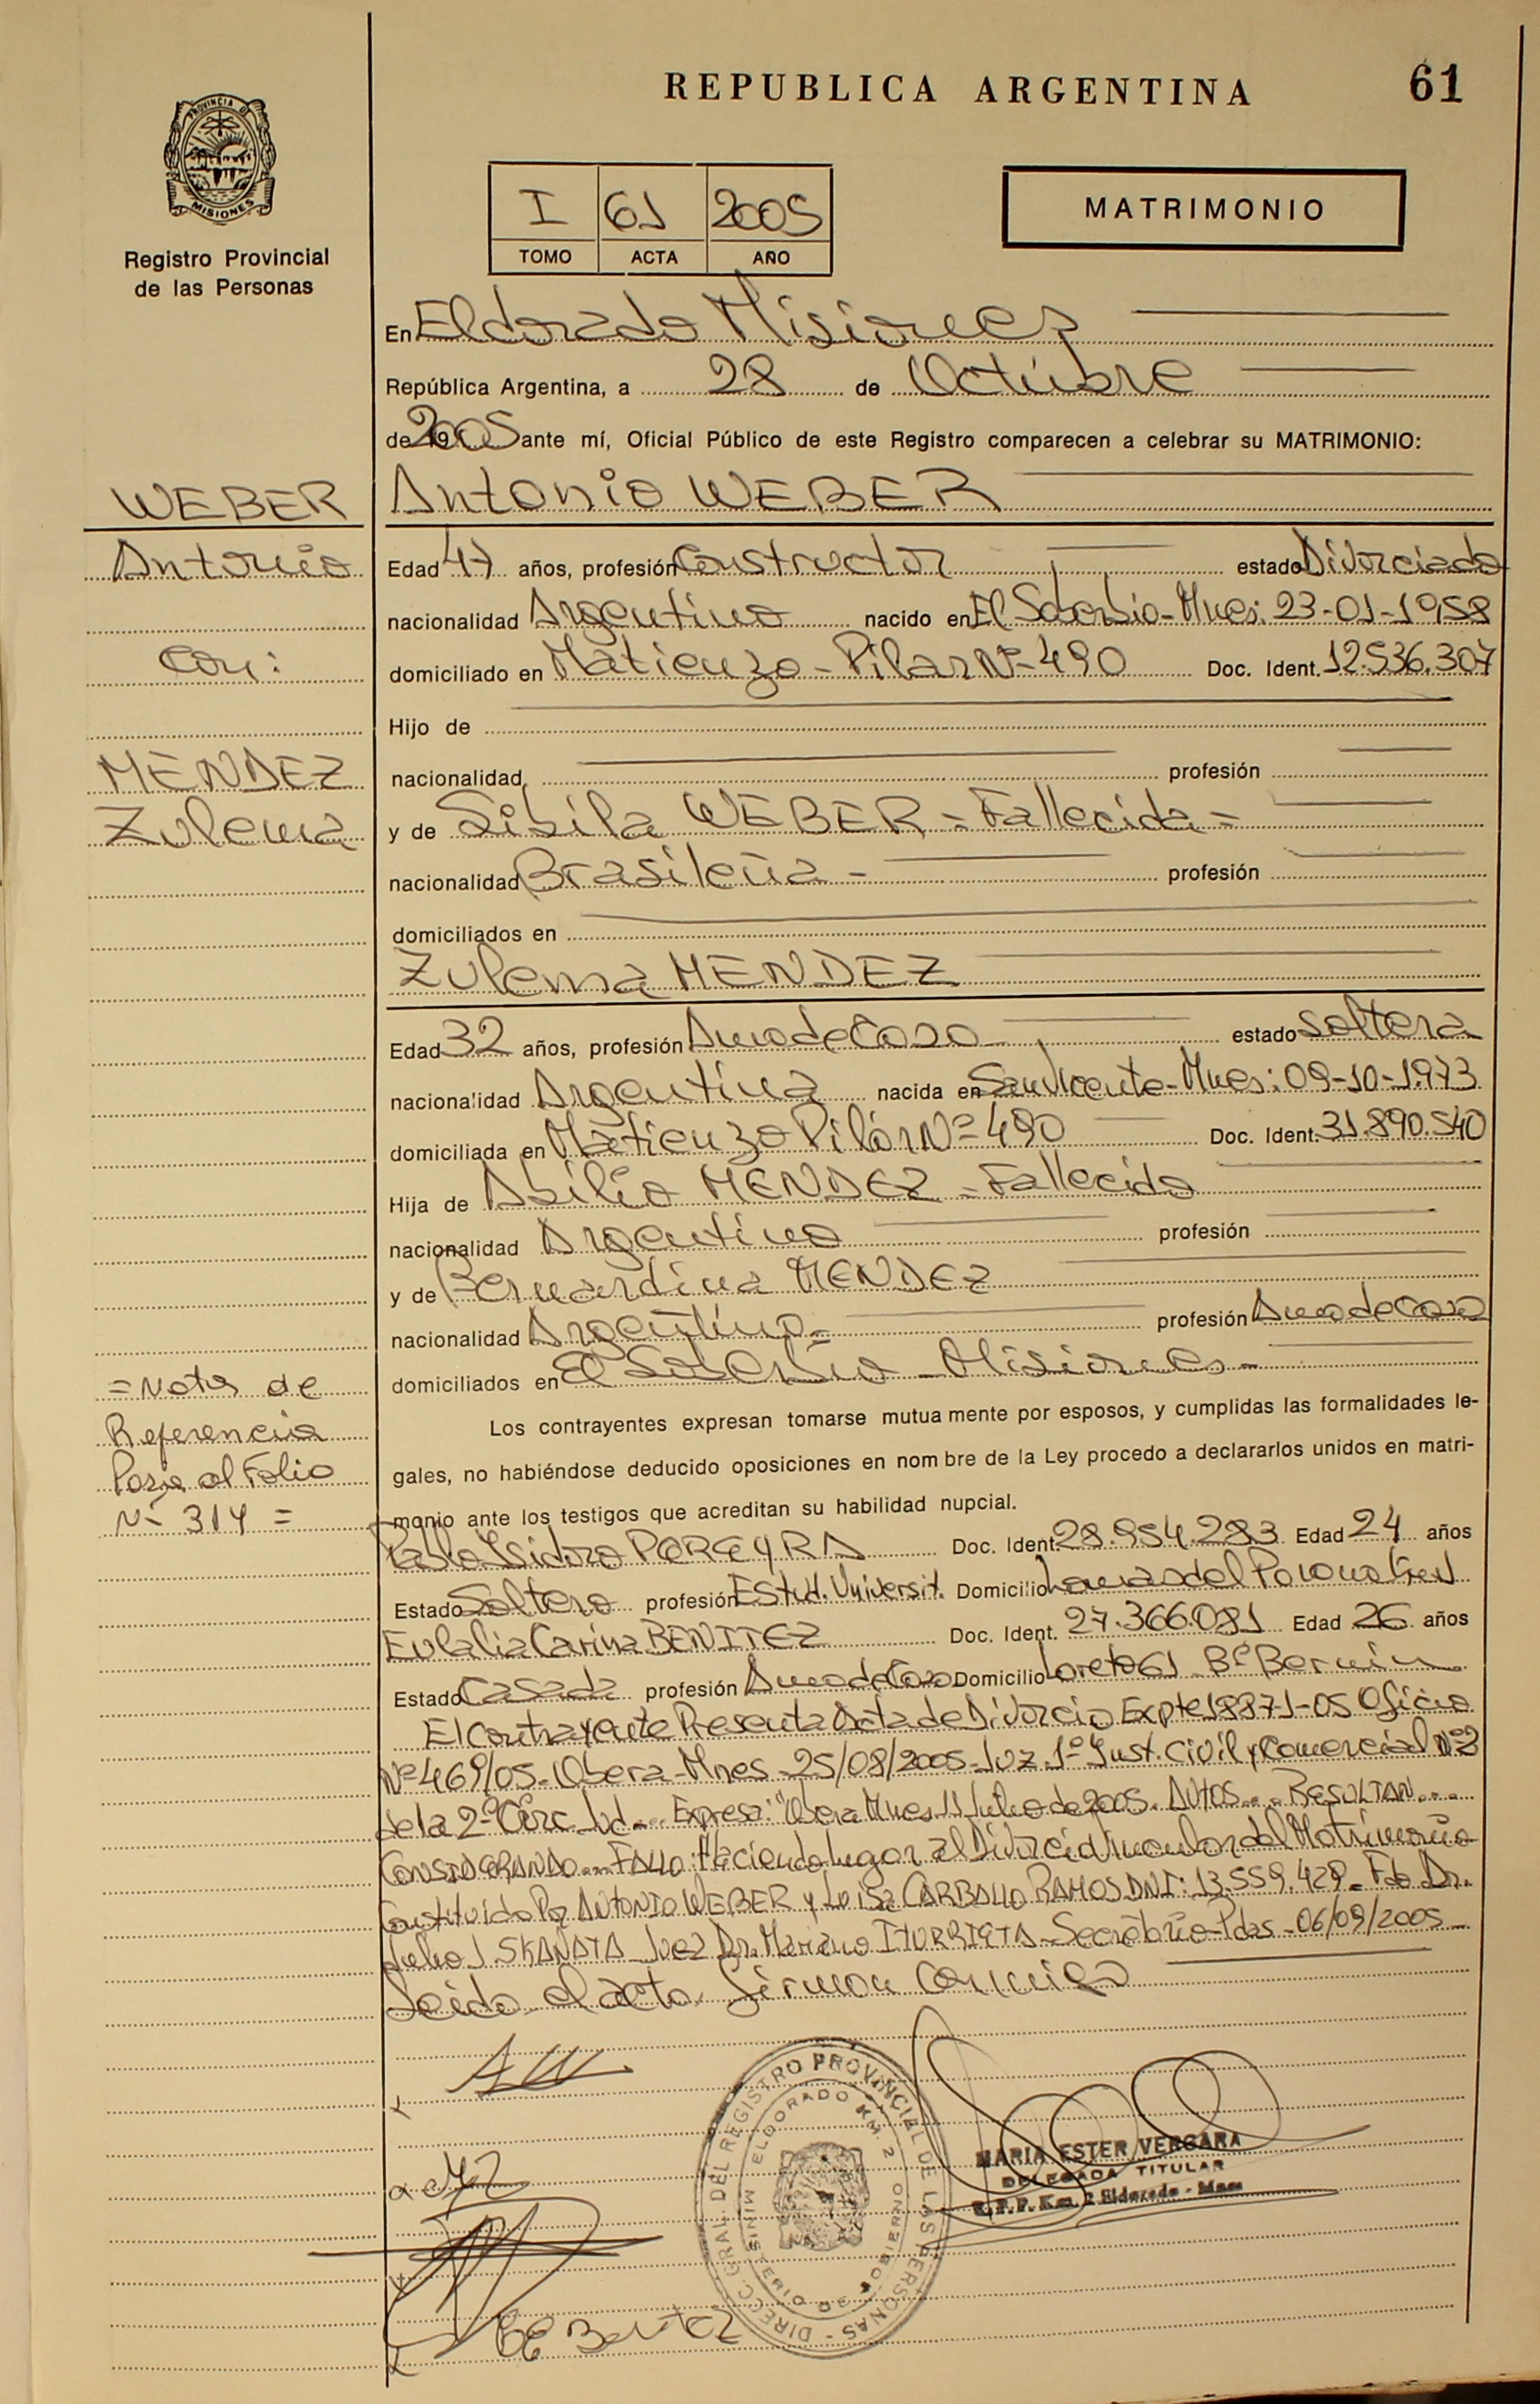 REPUBLICA ARGENTINA
61
PROVINCIA DE
MISIONES
Registro Provincial
de las Personas
I 61 2005
TOMO ACTA AÑO
MATRIMONIO
En Eldorado Misiones
República Argentina, a 28 de Octubre
de 2005 ante mí, Oficial Público de este Registro comparecen a celebrar su MATRIMONIO:
WEBER
Antonio
Con:
MENDEZ
Zulema
Antonio WEBER
Edad 47 años, profesión Constructor estado Divorciado
nacionalidad Argentino nacido en El Soberbio - Mnes: 23-01-1958
domiciliado en Matienzo - Pilar Nº 490 Doc. Ident. 12.536.307
Hijo de
nacionalidad profesión
y de Sibila WEBER = Fallecida =
nacionalidad Brasileña - profesión
domiciliados en
Zulema MENDEZ
Edad 32 años, profesión Ama de Casa estado Soltera
nacionalidad Argentina nacida en San Vicente - Mnes: 09-10-1.973
domiciliada en Matienzo Pilar Nº 490 Doc. Ident. 31.890.540
Hija de Abilio MENDEZ - Fallecido
nacionalidad Argentino profesión
y de Bernardina MENDEZ
nacionalidad Argentina = profesión Ama de Casa
domiciliados en El Soberbio - Misiones -
= Nota de
Referencia
Pasa al Folio
Nº 314 =
Los contrayentes expresan tomarse mutuamente por esposos, y cumplidas las formalidades le-
gales, no habiéndose deducido oposiciones en nombre de la Ley procedo a declararlos unidos en matri-
monio ante los testigos que acreditan su habilidad nupcial.
Pablo Isidoro PEREYRA Doc. Ident. 28.954.283 Edad 24 años
Estado Soltero profesión Estud. Universit. Domicilio Lomas del Parana
Eulalia Carina BENITEZ Doc. Ident. 27.366.081 Edad 26 años
Estado Casada profesión Ama de Casa Domicilio Loreto 61 Bº
El Contrayente Presenta Acta de Divorcio Expte 18871-05 Oficio
Nº 469/05 - Obera - Mnes - 25/08/2005 - Juz. 1º Inst. Civil y Comercial Nº 2
de la 2º Circ. Jud... Expresa: "Obera Mnes 11 Julio de 2005. AUTOS... RESULTAN...
CONSIDERANDO... FALLO: Haciendo Lugar al Divorcio Vincular del Matrimonio
Constituido Por ANTONIO WEBER y Luisa CARBALLO RAMOS DNI: 13.559.429 - Fdo Dr.
Julio J. SKANATA Juez Dr. Mariano ITURRIETA - Secretario - Pdas - 06/09/2005
Leido el acto firman conmigo
AW
MARIA ESTER VERGARA
DELEGADA TITULAR
R.P.P. Km. 2 Eldorado - Mnes
DIRECC. GRAL. DEL REGISTRO PROVINCIAL DE LAS PERSONAS -
MINISTERIO DE GOBIERNO
ELDORADO KM. 2